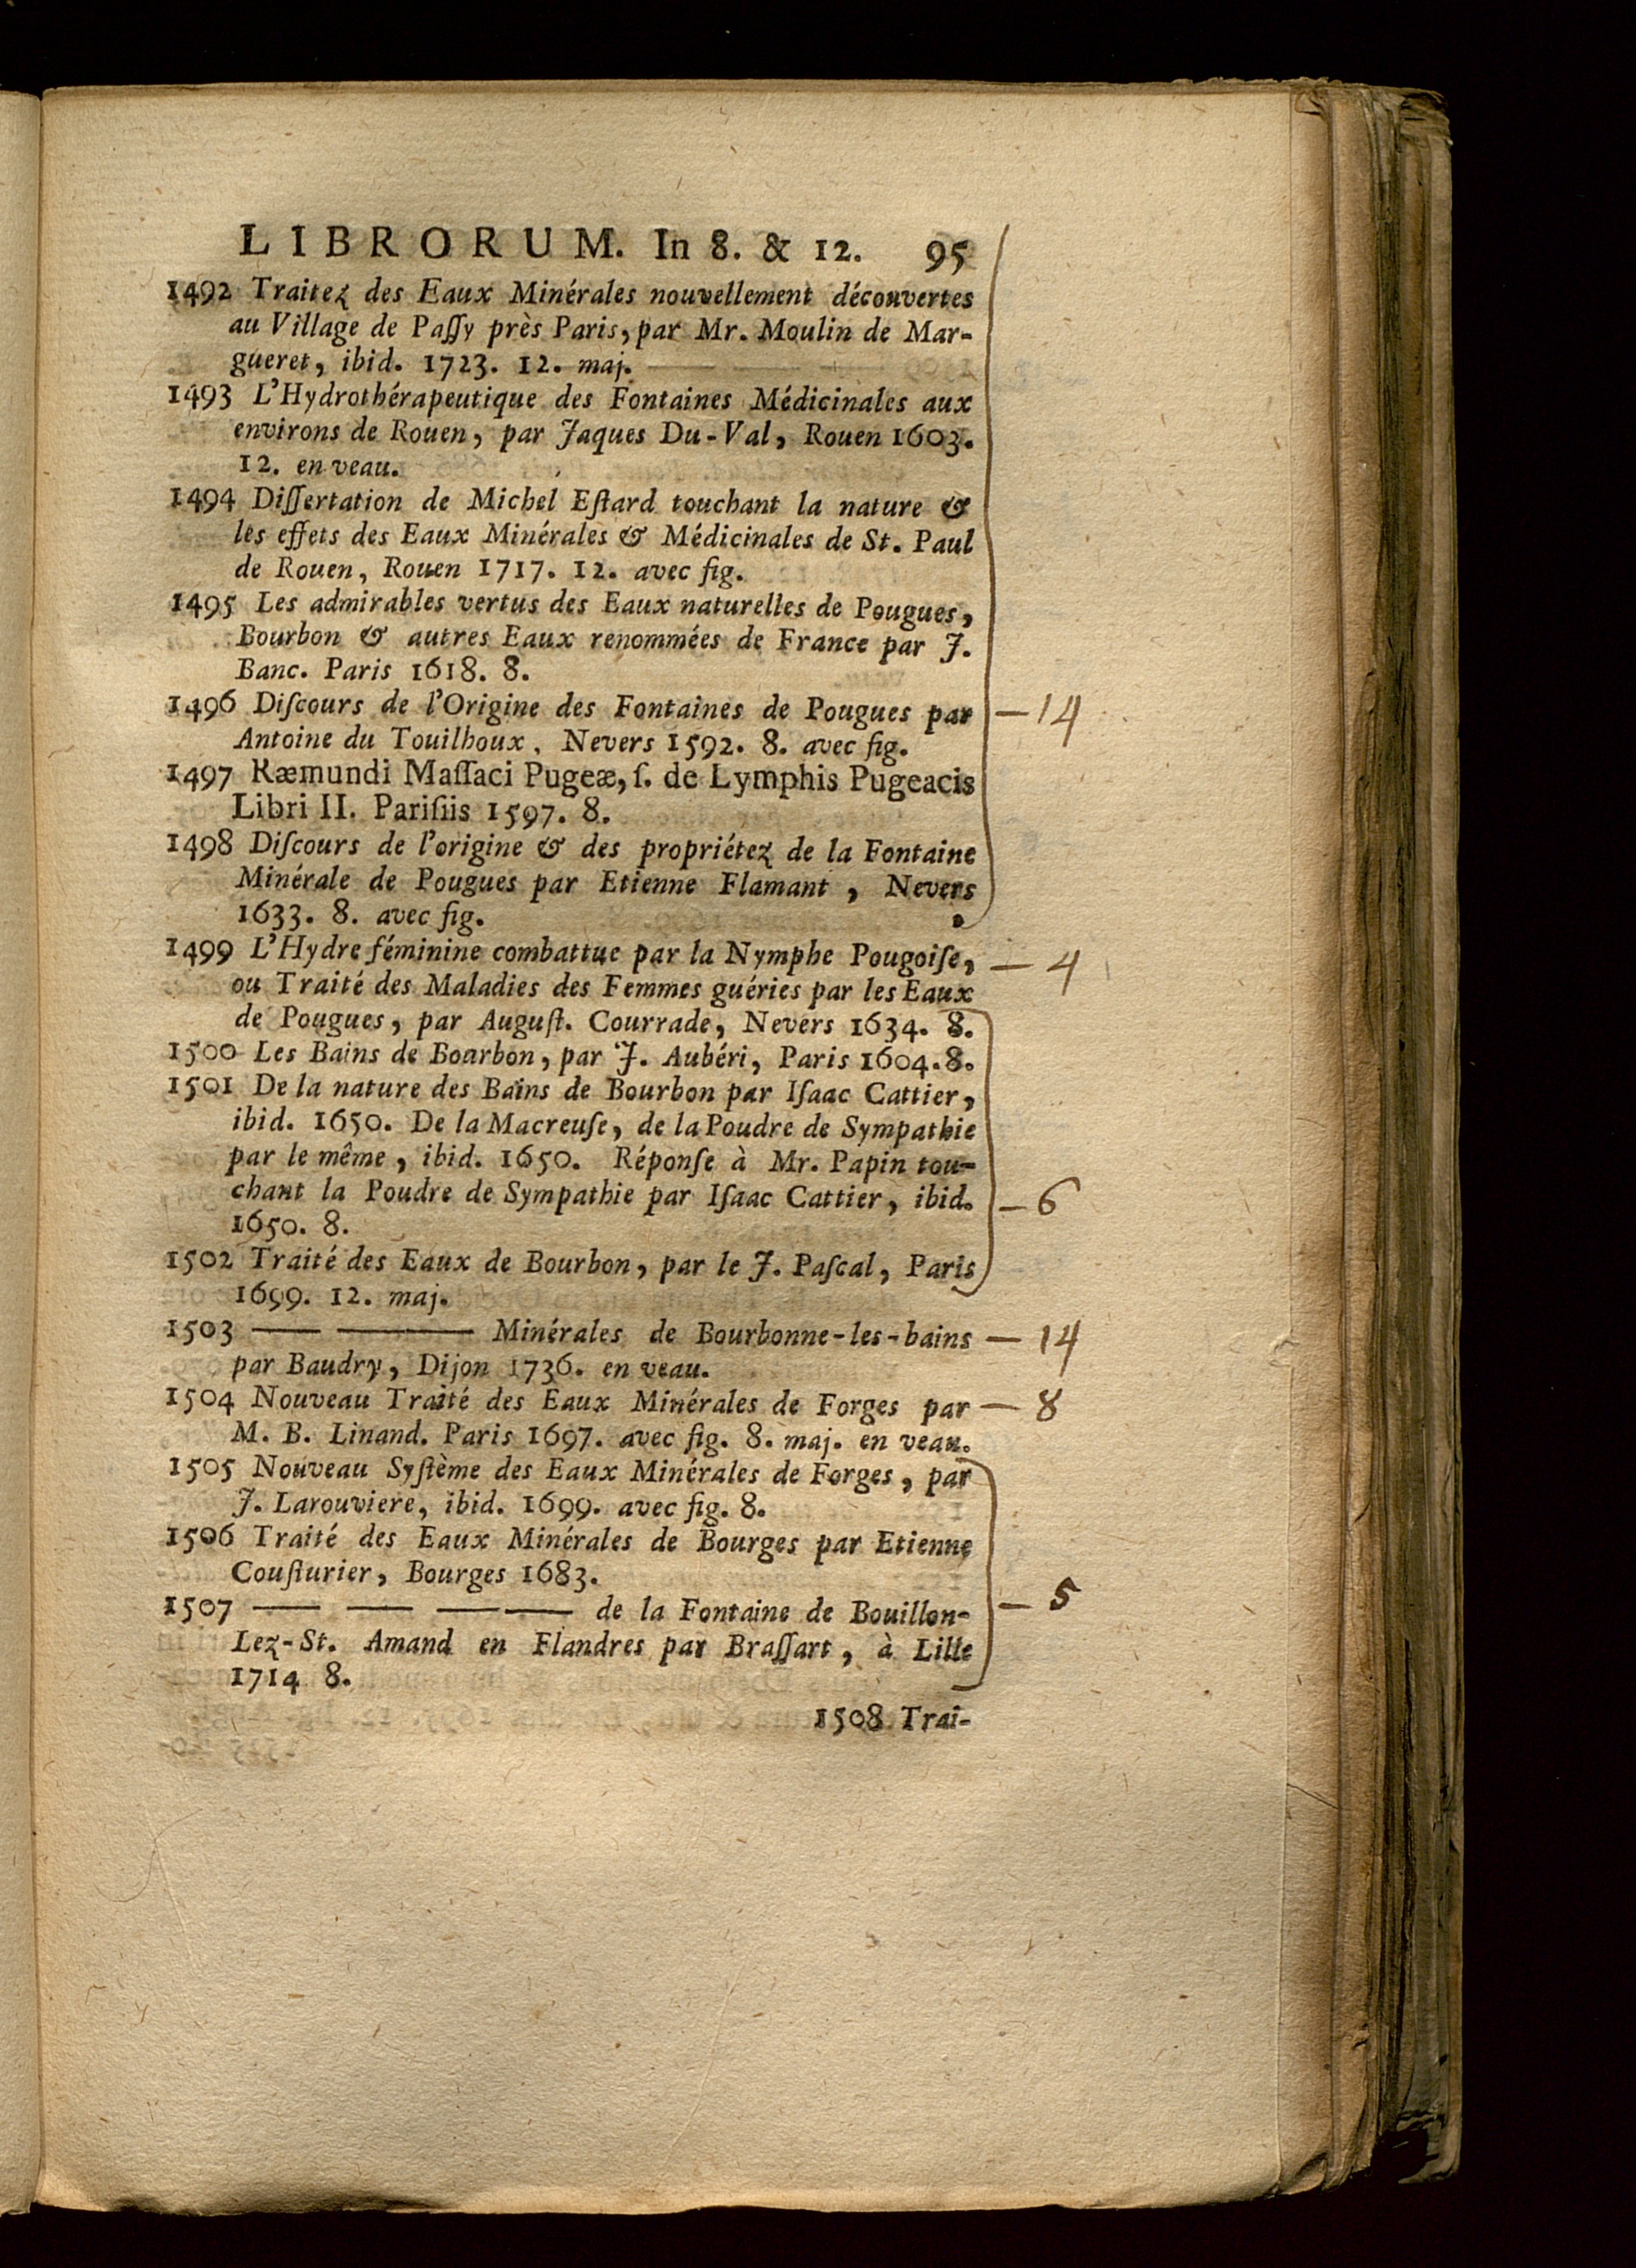 LIBRORUM. In 8. & 12. 95
1492 Traitez des Eaux Minérales nouvellement découvertes
au Village de Paſſy près Paris, par Mr. Moulin de Mar-
gueret, ibid. 1723. 12. maj.
1493 L'Hydrothérapeutique des Fontaines Médicinales aux
environs de Rouen, par Jaques Du-Val, Rouen 1603.
12. en veau.
1494 Diſſertation de Michel Eſtard touchant la nature &
les effets des Eaux Minérales & Médicinales de St. Paul
de Rouen, Rouen 1717. 12. avec fig.
1495 Les admirables vertus des Eaux naturelles de Pougues,
Bourbon & autres Eaux renommées de France par J.
Banc. Paris 1618. 8.
1496 Diſcours de l'Origine des Fontaines de Pougues par — 14
Antoine du Touilhoux, Nevers 1592. 8. avec fig.
1497 Ræmundi Maſſaci Pugeæ, ſ. de Lymphis Pugeacis
Libri II. Pariſiis 1597. 8.
1498 Diſcours de l'origine & des propriétez de la Fontaine
Minérale de Pougues par Etienne Flamant, Nevers
1633. 8. avec fig.
1499 L'Hydre féminine combattue par la Nymphe Pougoiſe, — 4
ou Traité des Maladies des Femmes guéries par les Eaux
de Pougues, par Auguſt. Courrade, Nevers 1634. 8.
1500 Les Bains de Boarbon, par J. Aubéri, Paris 1604. 8.
1501 De la nature des Bains de Bourbon par Iſaac Cattier,
ibid. 1650. De la Macreuſe, de la Poudre de Sympathie
par le même, ibid. 1650. Réponſe à Mr. Papin tou-
chant la Poudre de Sympathie par Iſaac Cattier, ibid. — 6
1650. 8.
1502 Traité des Eaux de Bourbon, par le J. Paſcal, Paris
1699. 12. maj.
1503 —— —— Minérales de Bourbonne-les-bains — 14
par Baudry, Dijon 1736. en veau.
1504 Nouveau Traité des Eaux Minérales de Forges par — 8
M. B. Linand. Paris 1697. avec fig. 8. maj. en veau.
1505 Nouveau Syſtème des Eaux Minérales de Forges, par
J. Larouviere, ibid. 1699. avec fig. 8.
1506 Traité des Eaux Minérales de Bourges par Etienne
Couſturier, Bourges 1683.
1507 —— —— —— —— de la Fontaine de Bouillon- — 5
Lez-St. Amand en Flandres par Braſſart, à Lille
1714 8.
1508 Trai-